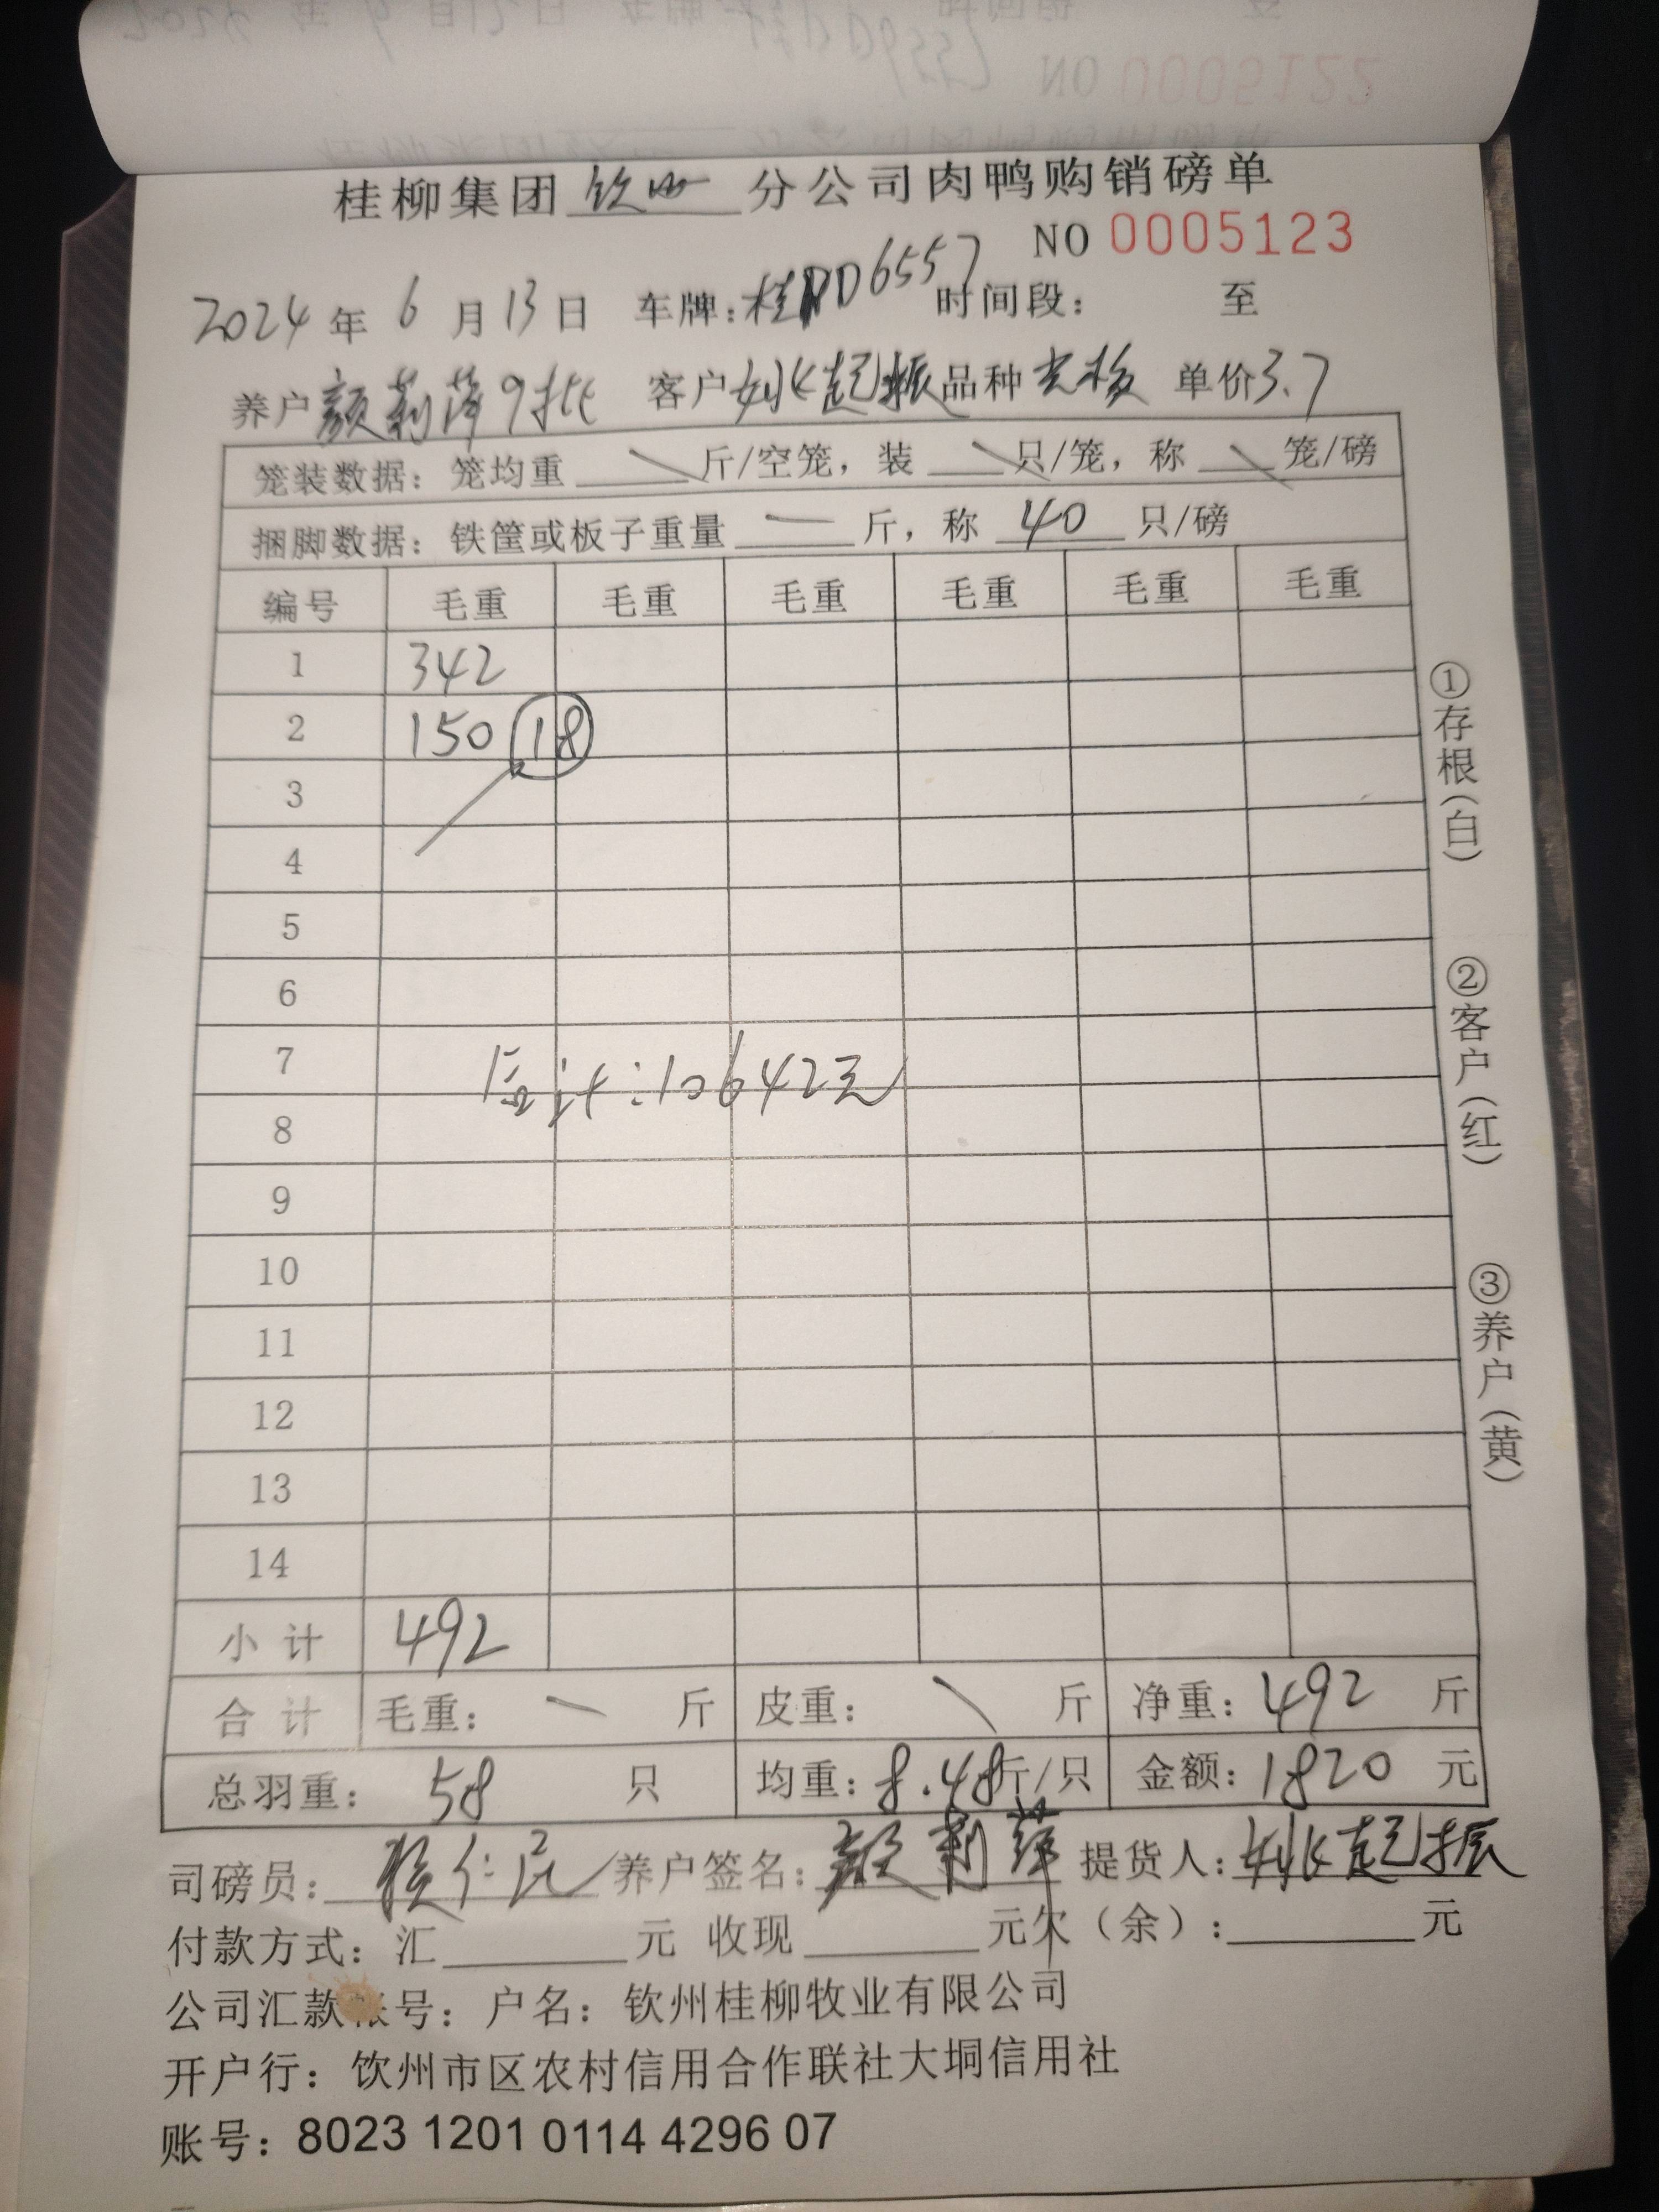 NO 0005122
桂柳集团 钦州 分公司肉鸭购销磅单
NO 0005123
2024年 6月 13日 车牌:桂 D6557 时间段: 至
养户 颜莉萍9批 客户 姚起振 品种 单价3.7
笼装数据: 笼均重 斤/空笼, 装 只/笼, 称 笼/磅
捆脚数据: 铁筐或板子重量 斤, 称 40 只/磅
编号 毛重 毛重 毛重 毛重 毛重 毛重
1 342
2 150 18
3
4
5
6
7
合计:10642元
8
9
10
11
12
13
14
小计 492
合计 毛重: 斤 皮重: 斤 净重: 492 斤
总羽重: 58 只 均重: 8.48斤/只 金额: 1820 元
司磅员: 养户签名: 颜莉萍 提货人: 姚起振
付款方式: 汇 元 收现 元欠(余): 元
公司汇款账号: 户名: 钦州桂柳牧业有限公司
开户行: 钦州市区农村信用合作联社大垌信用社
账号: 8023 1201 0114 4296 07
①存根(白)
②客户(红)
③养户(黄)